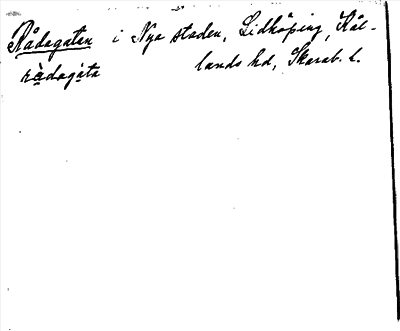 Rådagatan i Nya staden, Lidköping, Kål-
lands hd, Skarab. l.
rà̊dagàta